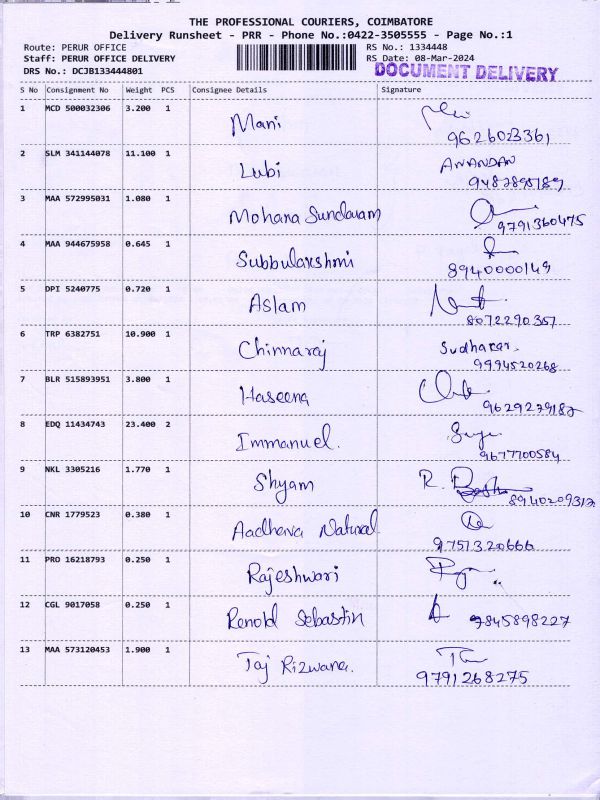 THE PROFESSIONAL COURIERS, COIMBATORE
Delivery Runsheet - PRR - Phone No.:0422-3505555 - Page No.:1
Route: PERUR OFFICE RS No.: 1334448
Staff: PERUR OFFICE DELIVERY RS Date: 08-Mar-2024
DRS No.: DCJB133444801 DOCUMENT DELIVERY
S No Consignment No Weight PCS Consignee Details Signature
1 MCD 500032306 3.200 1
Mani
9626023361
2 SLM 341144078 11.100 1 ANANDAN
Lubi
3 MAA 572995031 1.080 1
Mohana Sundaram
9791360475
4 MAA 944675958 0.645 1
Subbulakshmi
8940000149
5 DPI 5240775 0.720 1
Aslam
8072290357
6 TRP 6382751 10.900 1
Chinnaraj Sudhakar.
9994520268
7 BLR 515893951 3.800 1
Haseena
9629279182
8 EDQ 11434743 23.400 2
Immanuel.
9677700584
9 NKL 3305216 1.770 1
Shyam R.
8940209312
10 CNR 1779523 0.380 1
Aadheva Natural
9757320666
11 PRO 16218793 0.250 1
Rajeshwari
12 CGL 9017058 0.250 1
Renold Sebastin 9845898227
13 MAA 573120453 1.900 1
Taj Rizwana.
9791268275